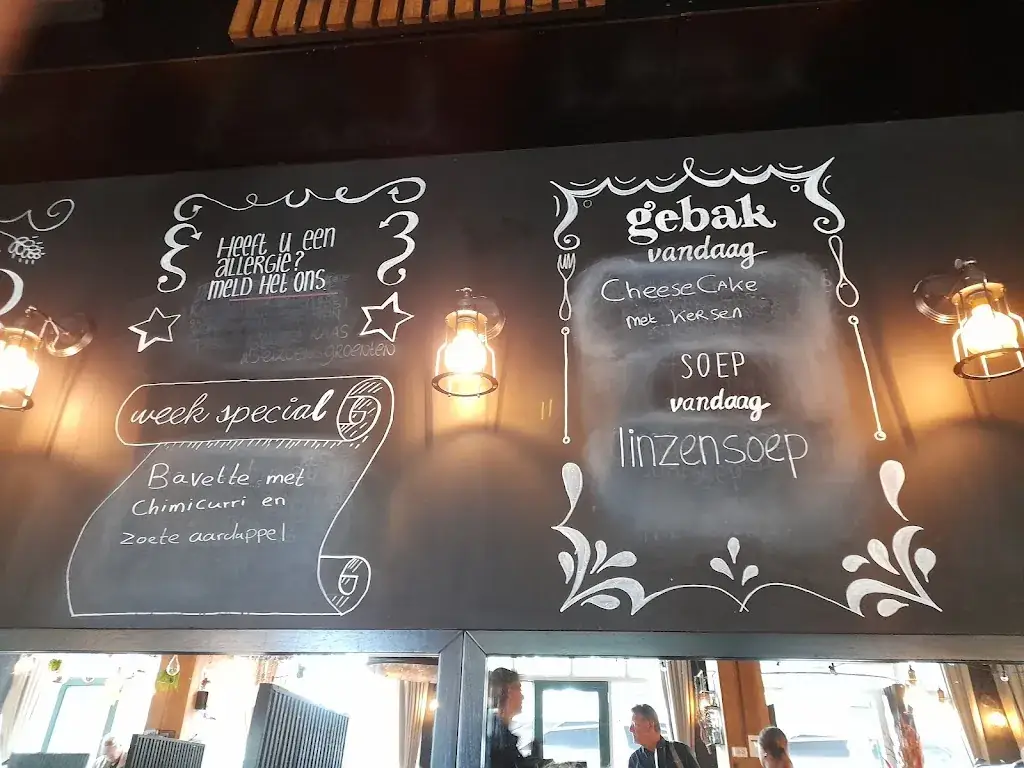 Heeft u een
allergie?
meld het ons
week special
Bavette met
Chimicurri en
zoete aardappel
gebak
vandaag
CheeseCake
met kersen
SOEP
vandaag
linzensoep